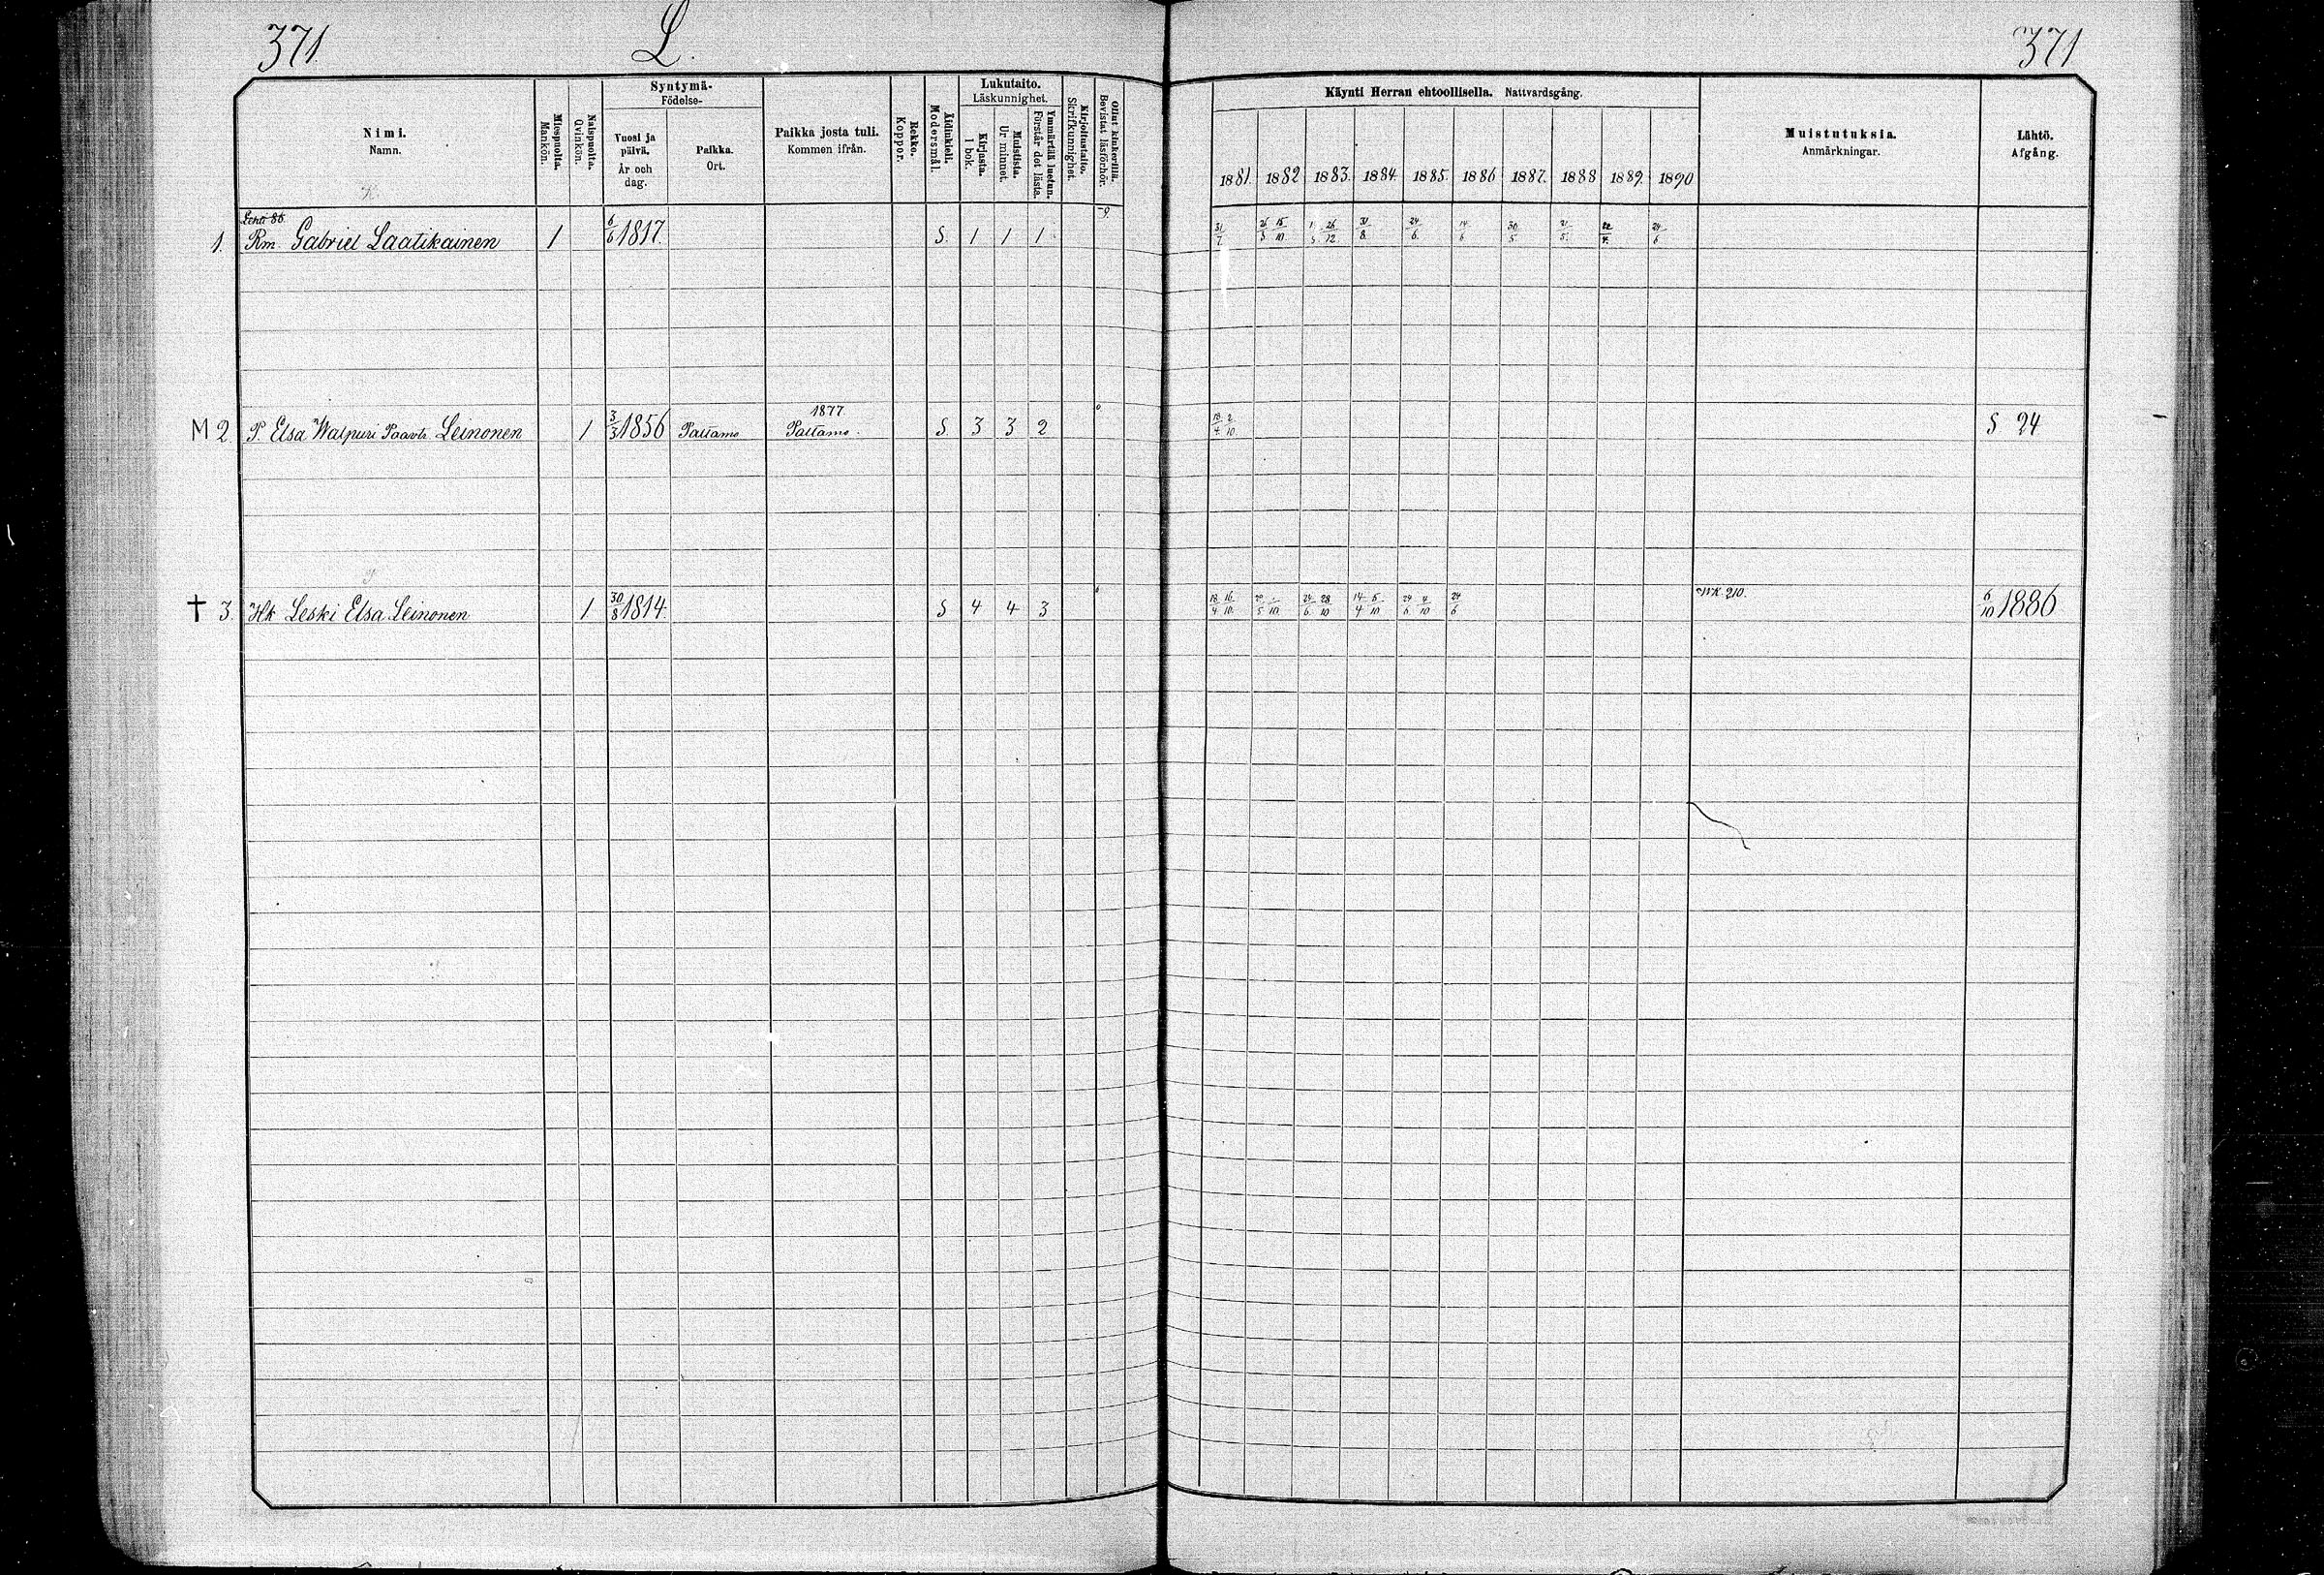 371 L. 371
Nimi. Namn.
Miespuolta. Mankön.
Naispuolta. Qvinkön.
Syntymä- Födelse-
Vuosi ja päivä. År och dag.
Paikka. Ort.
Paikka josta tuli. Kommen ifrån.
Rokko. Koppor.
Äidinkieli. Modersmål.
Lukutaito. Läskunnighet.
Kirjasta. I bok.
Muistista. Ur minnet.
Ymmärtää luetun. Förstår det lästa.
Kirjoitustaito. Skrifkunnighet.
Ollut kinkerillä. Bevistat läsförhör.
Käynti Herran ehtoollisella. Nattvardsgång.
1881. 1882 1883. 1884. 1885. 1886 1887. 1888 1889. 1890
Muistutuksia. Anmärkningar.
Lähtö. Afgång.
1. Rm. Gabriel Laatikainen 1 6/6 1817. S. 1 1 1 31/7. 15/10. 26/12. 31/8. 24/6. 14/6 30/5 24/6
1877
M 2 P. Elsa Walpuri Paavot. Leinonen 1 3/3 1856 Paltamo Paltamo. S. 3 3 2 18/4 2/10. S 24
† 3. Hk Leski Elsa Leinonen 1 30/8 1814. S 4 4 3 18/4 16/10. 24/6. 28/10 14/4 5/10 24/6 4/10 24/6 WK. 210. 6/10 1886